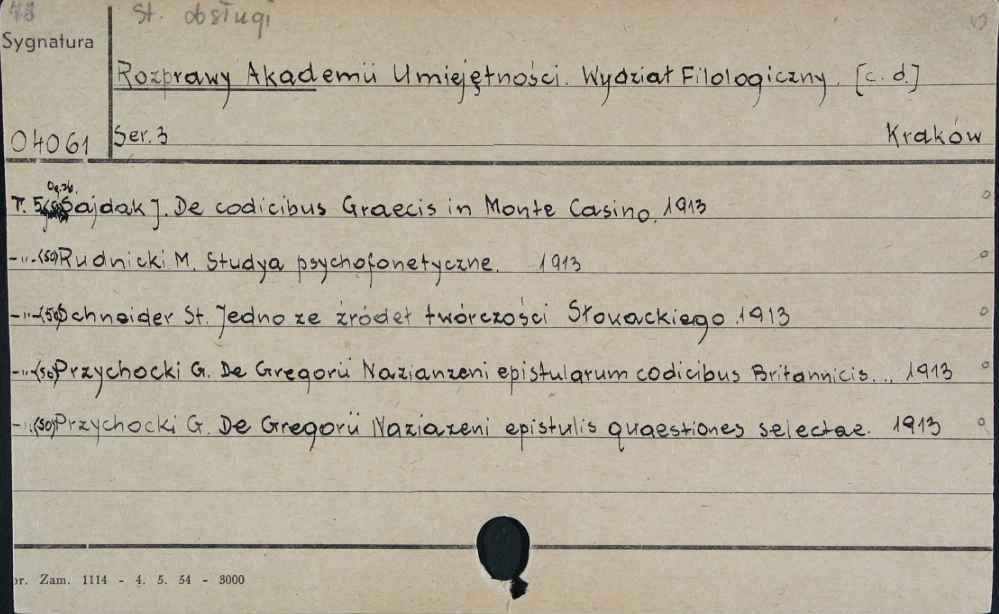 48 St. obsługi
Sygnatura
Rozprawy Akademii Umiejętności. Wydział Filologiczny. [c. d.]
04061 Ser. 3 Kraków
T. 5 Sajdak J. De codicibus Graecis in Monte Casino. 1913
-"- (50) Rudnicki M. Studya psychofonetyczne. 1913
-"- (50) Schneider St. Jedno ze źródeł twórczości Słowackiego. 1913
-"- (50) Przychocki G. De Gregorii Nazianzeni epistularum codicibus Britannicis... 1913
-"- (50) Przychocki G. De Gregorii Naziazeni epistulis quaestiones selectae. 1913
or. Zam. 1114 - 4. 5. 54 - 3000